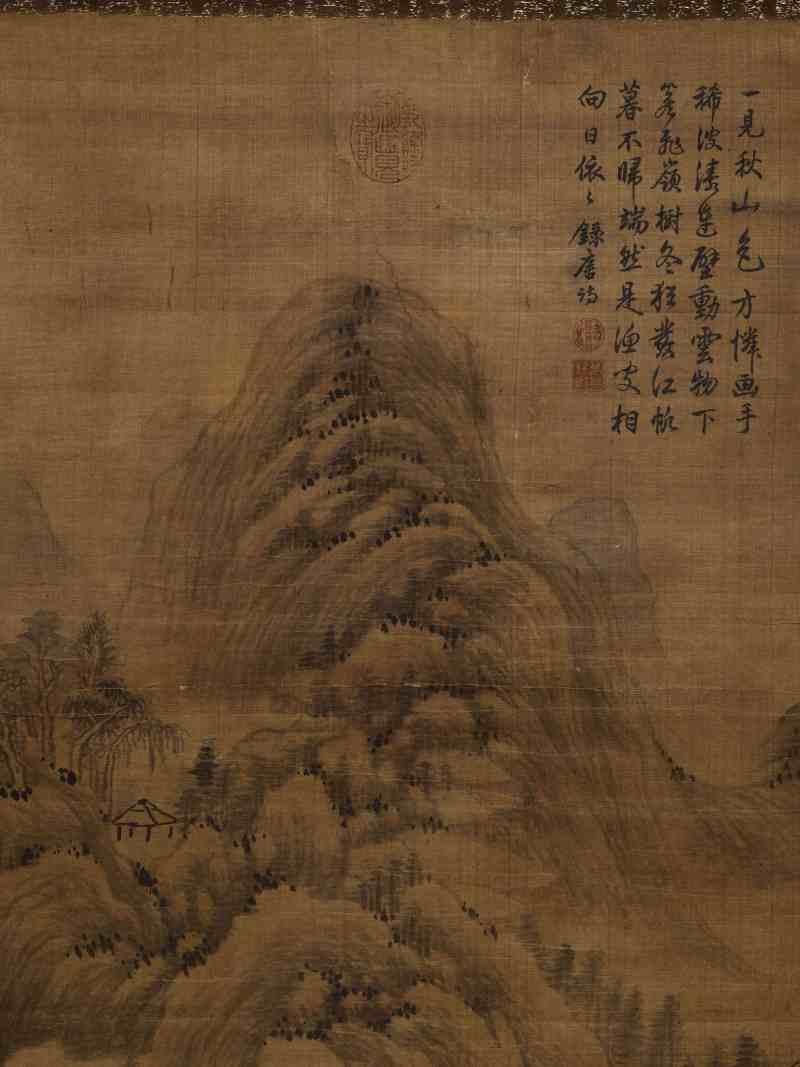 一見秋山色方憐画手
稀波濤連壁動雲物下
簷飛嶺樹冬猶發江帆
暮不歸端然是漁叟相
向日依〻錄唐詩